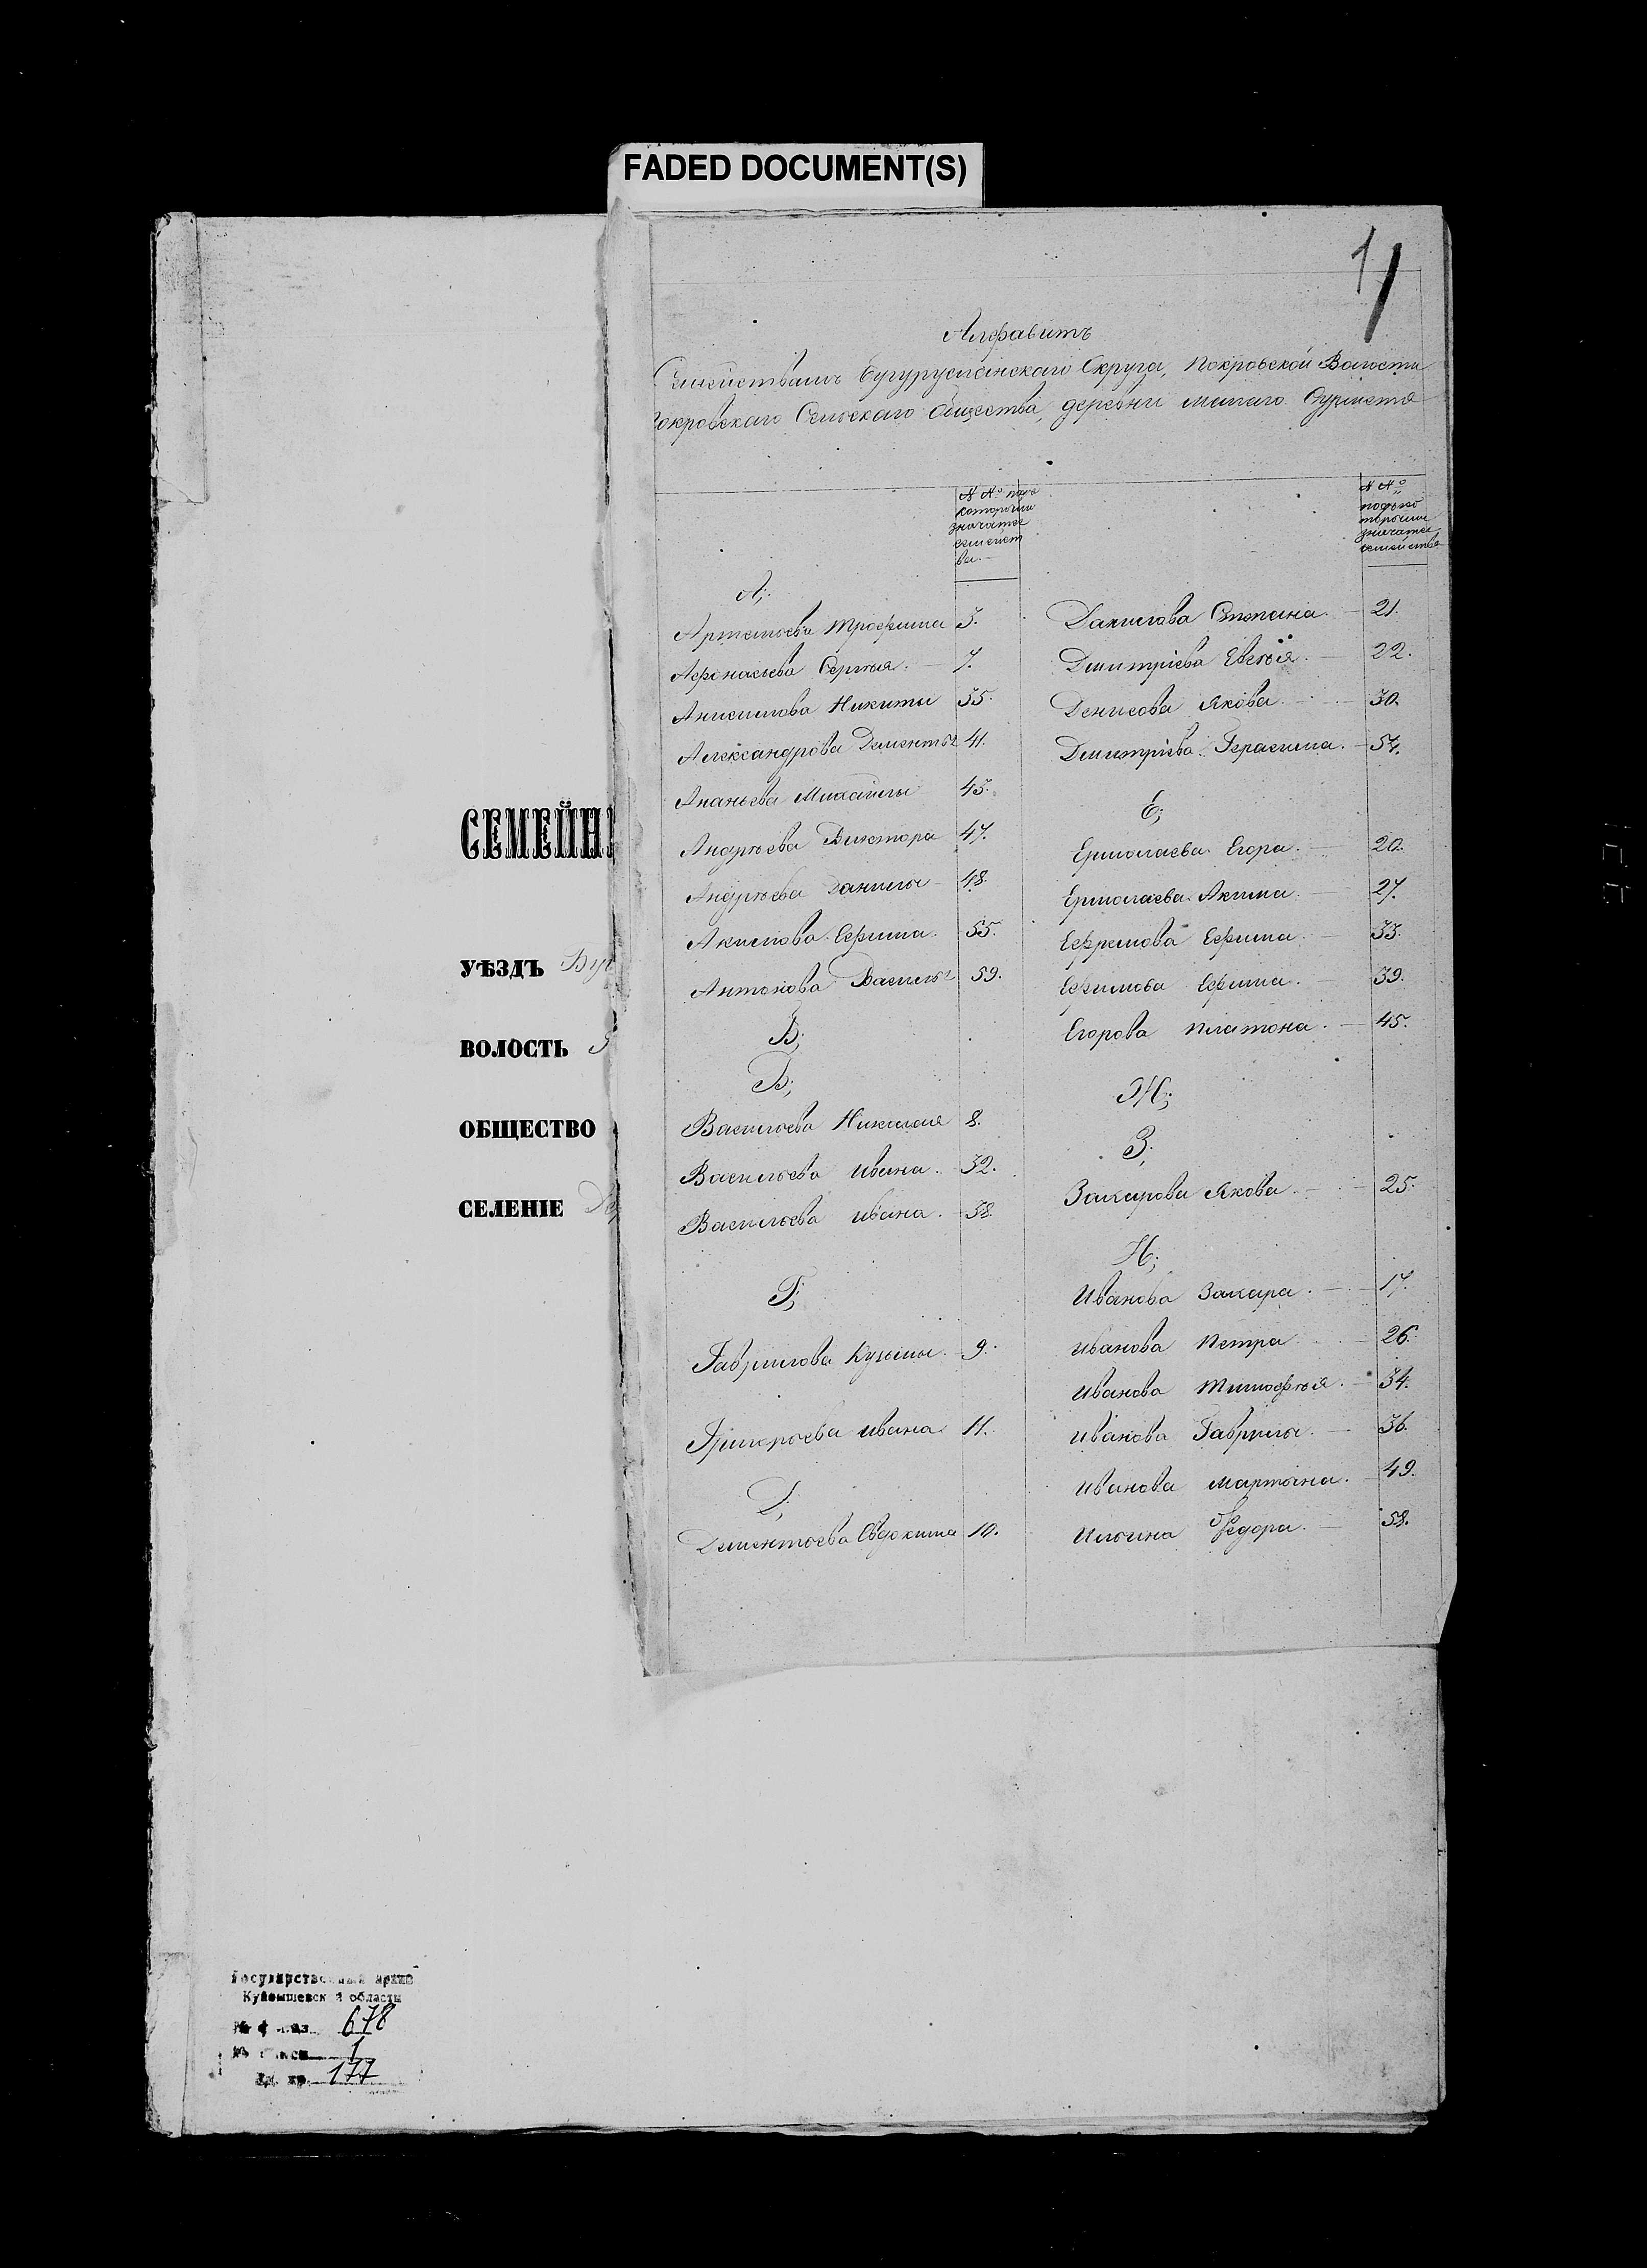 FADED DOCUMENT(S)
1
Алфавитъ
Семействамъ Бугурусланскаго Округа, Покровской Волости
Покровскаго Сельскаго Общества, деревни малаго
N №: подъ которыми значатся семейства.
N №: подъ которыми значатся семейства
А;
Артемьева Трофима 3.
Афонасьева Сергѣя. 7.
Анисимова Никиты 35.
Александрова Дементья 41.
Ананьева Михайлы 43.
Андрѣева Виктора 47.
Андрѣева Данилы 48.
Акимова Ефима. 55.
Антонова Василья 59.
Б;
В;
Васильева Николая 8.
Васильева Ивана. 32.
Васильева Ивана. 38.
Г;
Гаврилова Кузьмы. 9.
Григорьева Ивана 11.
Д;
Дементьева Евдокима 10.
Данилова Степана. 21.
Дмитріева Евсѣя. 22.
Денисова Якова. 30.
Дмитріева Герасима. 54.
Е;
Ермолаева Егора. 20.
Ермолаева Акима. 27.
Ефремова Ефима. 33.
Ефимова Ефима. 39.
Егорова Платона. 45.
Ж;
З;
Захарова Якова. 25.
И;
Иванова Захара. 17.
Иванова Петра 26.
Иванова Тимофѣя. 34.
Иванова Гаврилы. 36.
Иванова Мартына. 49.
Ильина Федора. 58.
СЕМЕЙН
УѢЗДЪ Буг
ВОЛОСТЬ
ОБЩЕСТВО
СЕЛЕНІЕ Де
Государственный архив
Куйбышевской области
678
1
Ед. хр. 177